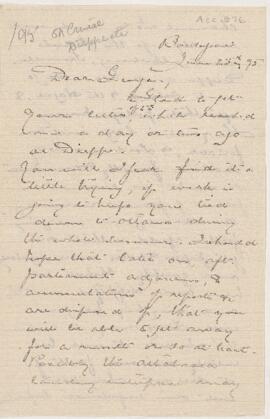 Acc. 876
1095 on Cruise
Dieppe etc
June 23rd 95
Dear George,
Glad to get
your letter which reached
me a day or two ago
at Dieppe.
You will I fear find it a
little trying, if work is
going to keep you tied
down to Ottawa during
the whole summer. I should
hope that later on, after
parliament adjourns, &
accumulations of reports &c
are disposed of, that you
will be able to get away
for a month or so at least.
Possibly the